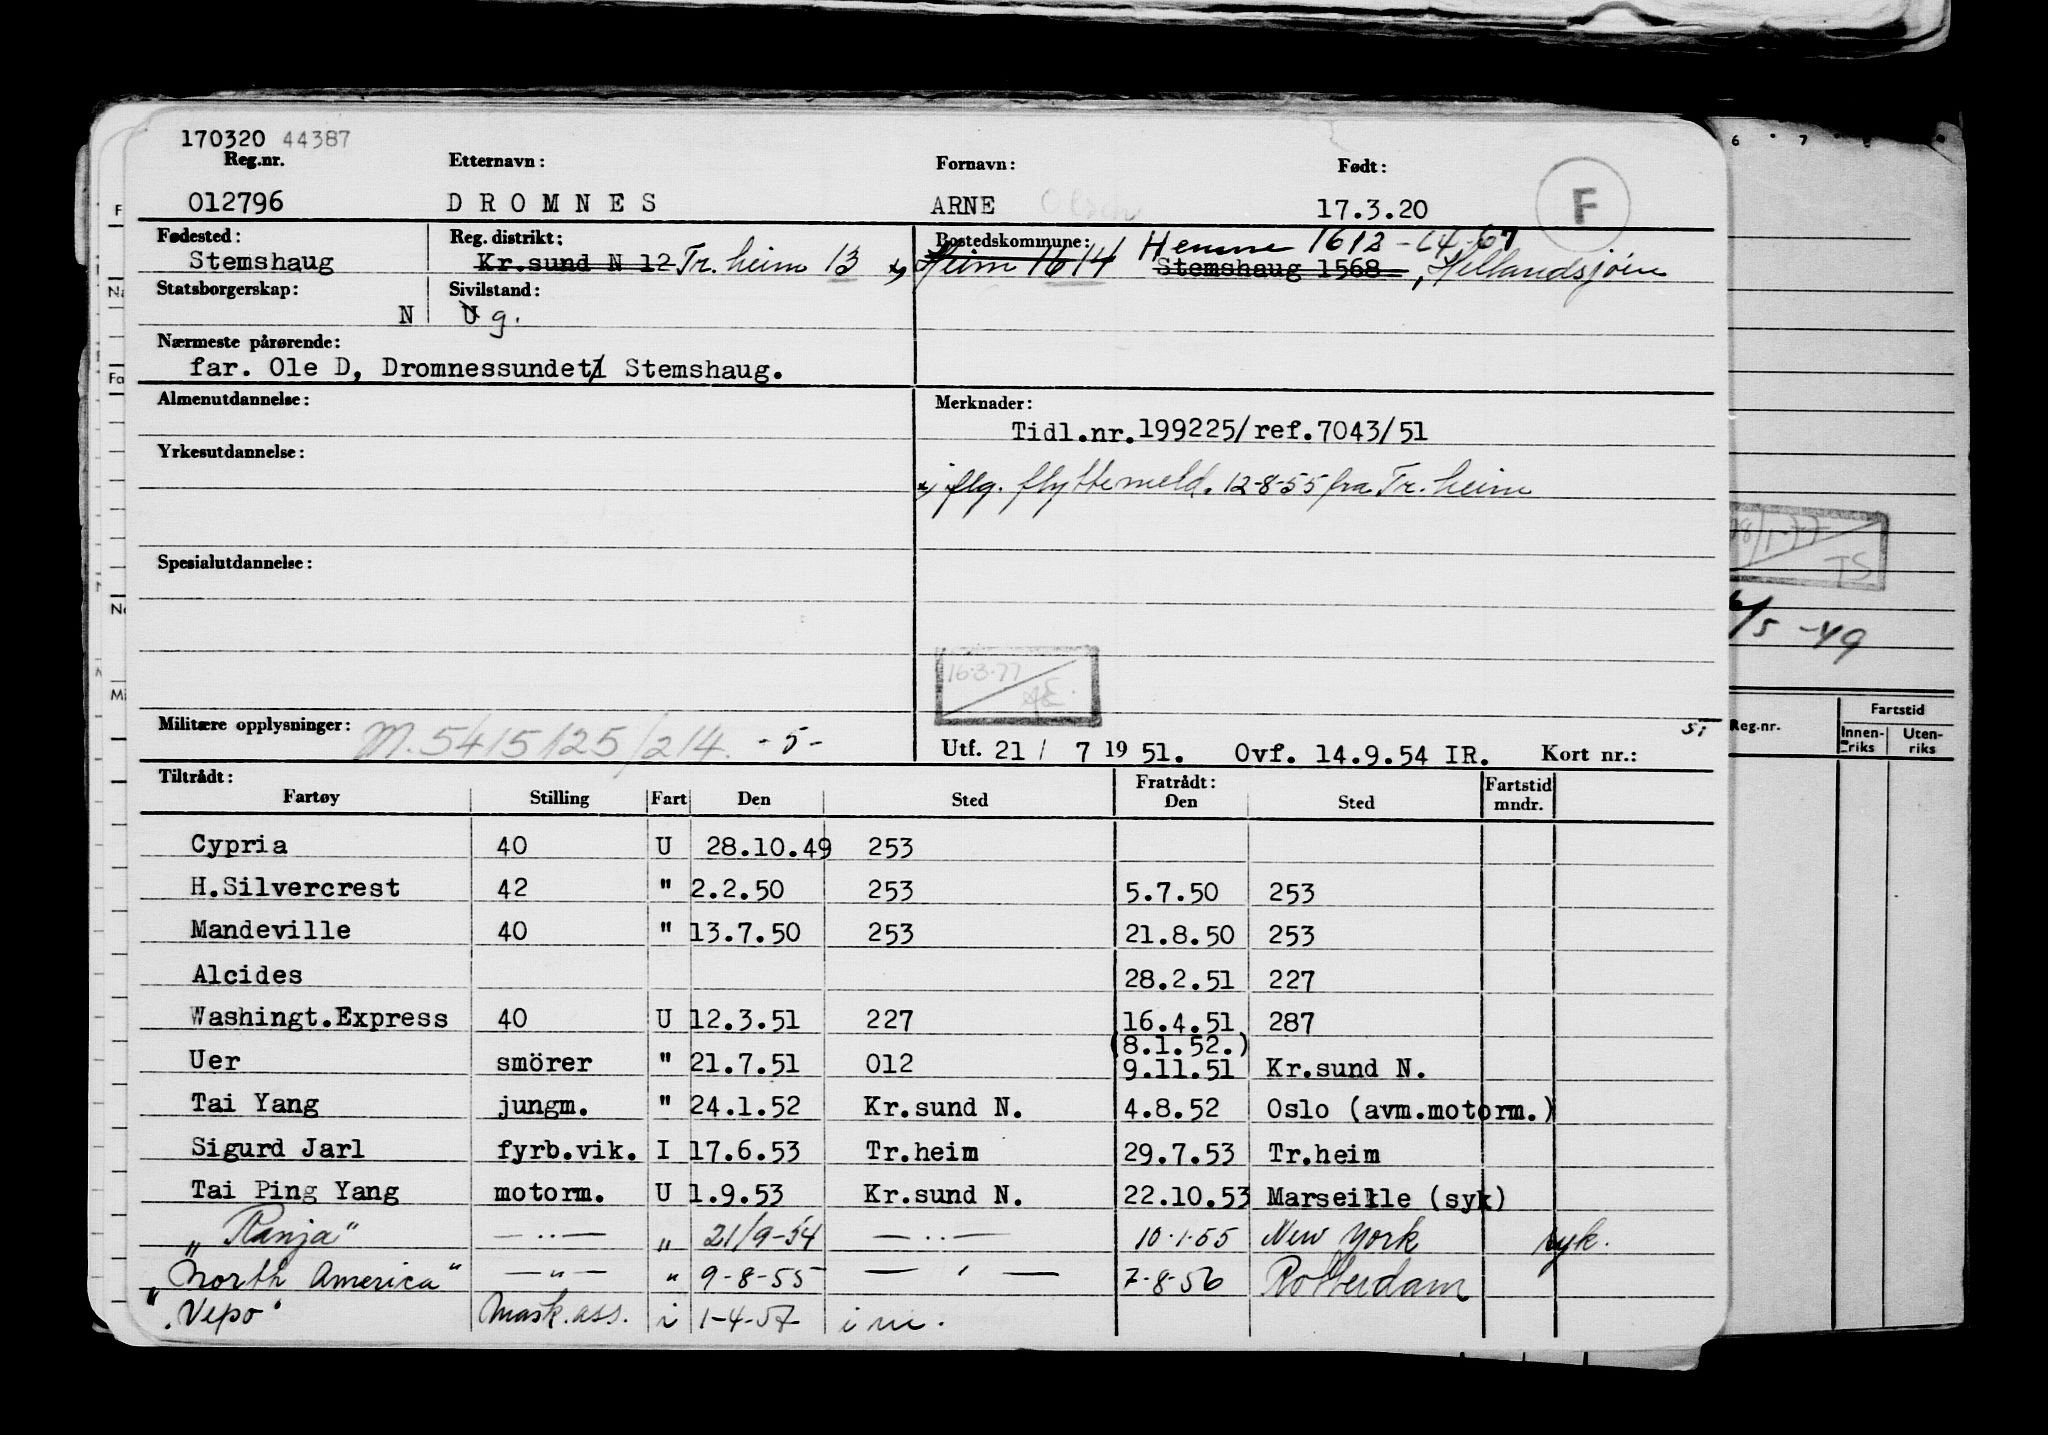 170320 44387
Reg.nr. Etternavn: Fornavn: Født:
012796 DROMNES ARNE Olsen 17.3.20 F
Fødested: Reg. distrikt: Bostedskommune: Hemne 1612 -14-67
Stemshaug Kr.sund N 12 Tr.heim 13 x) Heim 1614 Stemshaug 1568 , Hellandsjøen
Statsborgerskap: Sivilstand:
N U g.
Nærmeste pårørende:
far. Ole D, Dromnessundet/ Stemshaug.
Almenutdannelse: Merknader:
Tidl.nr.199225/ref.7043/51
Yrkesutdannelse:
x) iflg. flyttemeld. 12-8-55 fra Tr.heim
Spesialutdannelse:
16.3.77
Militære opplysninger: M.5415125/214. -5-
Utf. 21/ 7 19 51. Ovf. 14.9.54 IR. Kort nr.:
Tiltrådt: Fratrådt: Fartstid
Fartøy Stilling Fart Den Sted Den Sted mndr.
Cypria 40 U 28.10.49 253
H.Silvercrest 42 " 2.2.50 253 5.7.50 253
Mandeville 40 " 13.7.50 253 21.8.50 253
Alcides 28.2.51 227
Washingt.Express 40 U 12.3.51 227 16.4.51 287
(8.1.52.)
Uer smörer " 21.7.51 012 9.11.51 Kr.sund N.
Tai Yang jungm. " 24.1.52 Kr.sund N. 4.8.52 Oslo (avm.motorm.)
Sigurd Jarl fyrb.vik. I 17.6.53 Tr.heim 29.7.53 Tr.heim
Tai Ping Yang motorm. U 1.9.53 Kr.sund N. 22.10.53 Marseille (syk)
„Ranja" — .. — „ 21/9-54 — .. — 10.1.55 New York syk.
„North America" — „ — " 9-8-55 — ' — 7-8-56 Rotterdam
"Vepo" Mask.ass. i 1-4-57 i m.
6 7
18/1-77
TS
/5 -49
Reg.nr. Fartstid
Innen-riks Uten-riks